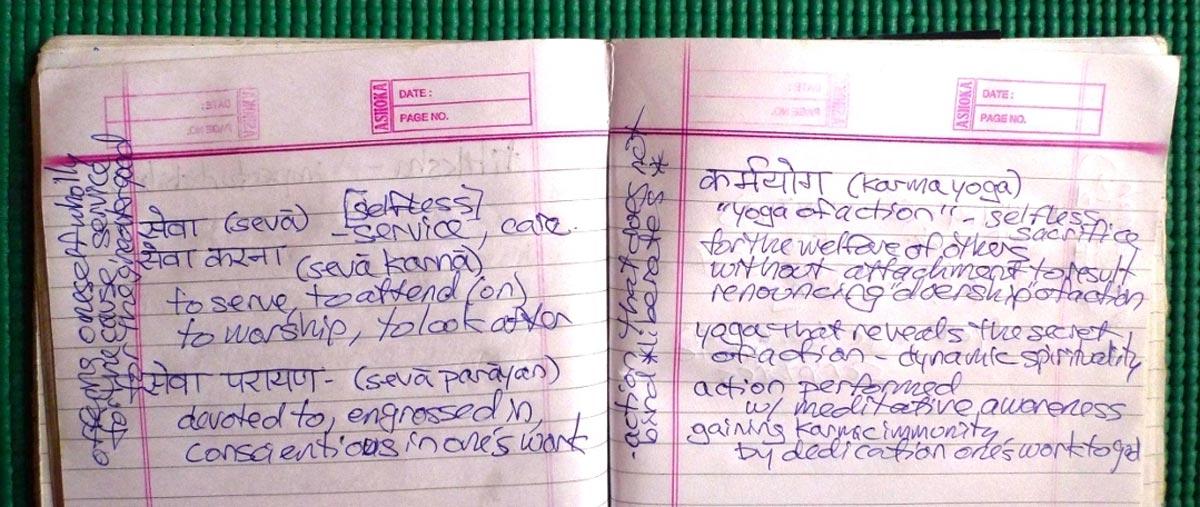 ASHOKA
DATE :
PAGE NO.
सेवा (sevā) - [selfless] service, care.
सेवा करना (sevā karnā)
to serve, to attend (on)
to worship, to look after
सेवा परायण - (sevā parāyan)
devoted to, engrossed in,
conscientious in one's work
offering oneself wholly
for the cause, service
for the greater good
ASHOKA
DATE :
PAGE NO.
कर्मयोग (karma yoga)
"yoga of action" - selfless
sacrifice
for the welfare of others
without attachment to result
renouncing "doership" of action
yoga that reveals the secret
of action - dynamic spirituality
action performed
w/ meditative awareness
gaining karmic immunity
by dedication one's work to god
- action that does not
bind * liberates *